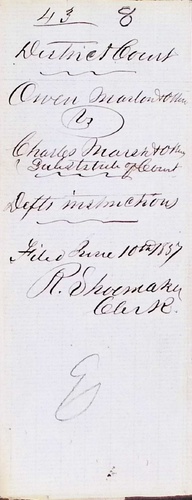 43 8
District Court
Owen
Vs
Charles Marsh & Others
of Court
Defts instructions
Filed June 10th 1857
R. Shoemaker
Clerk